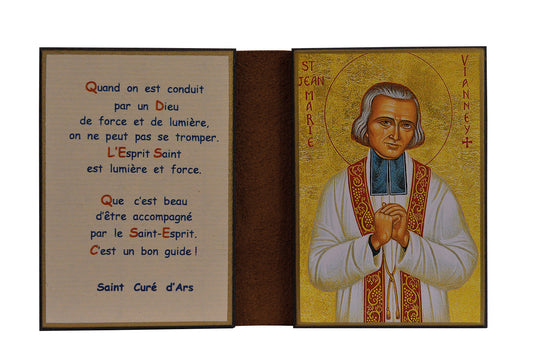 Quand on est conduit
par un Dieu
de force et de lumière,
on ne peut pas se tromper.
L'Esprit Saint
est lumière et force.
Que c'est beau
d'être accompagné
par le Saint-Esprit.
C'est un bon guide !
Saint Curé d'Ars
ST
JEAN
MARIE
VIANNEY